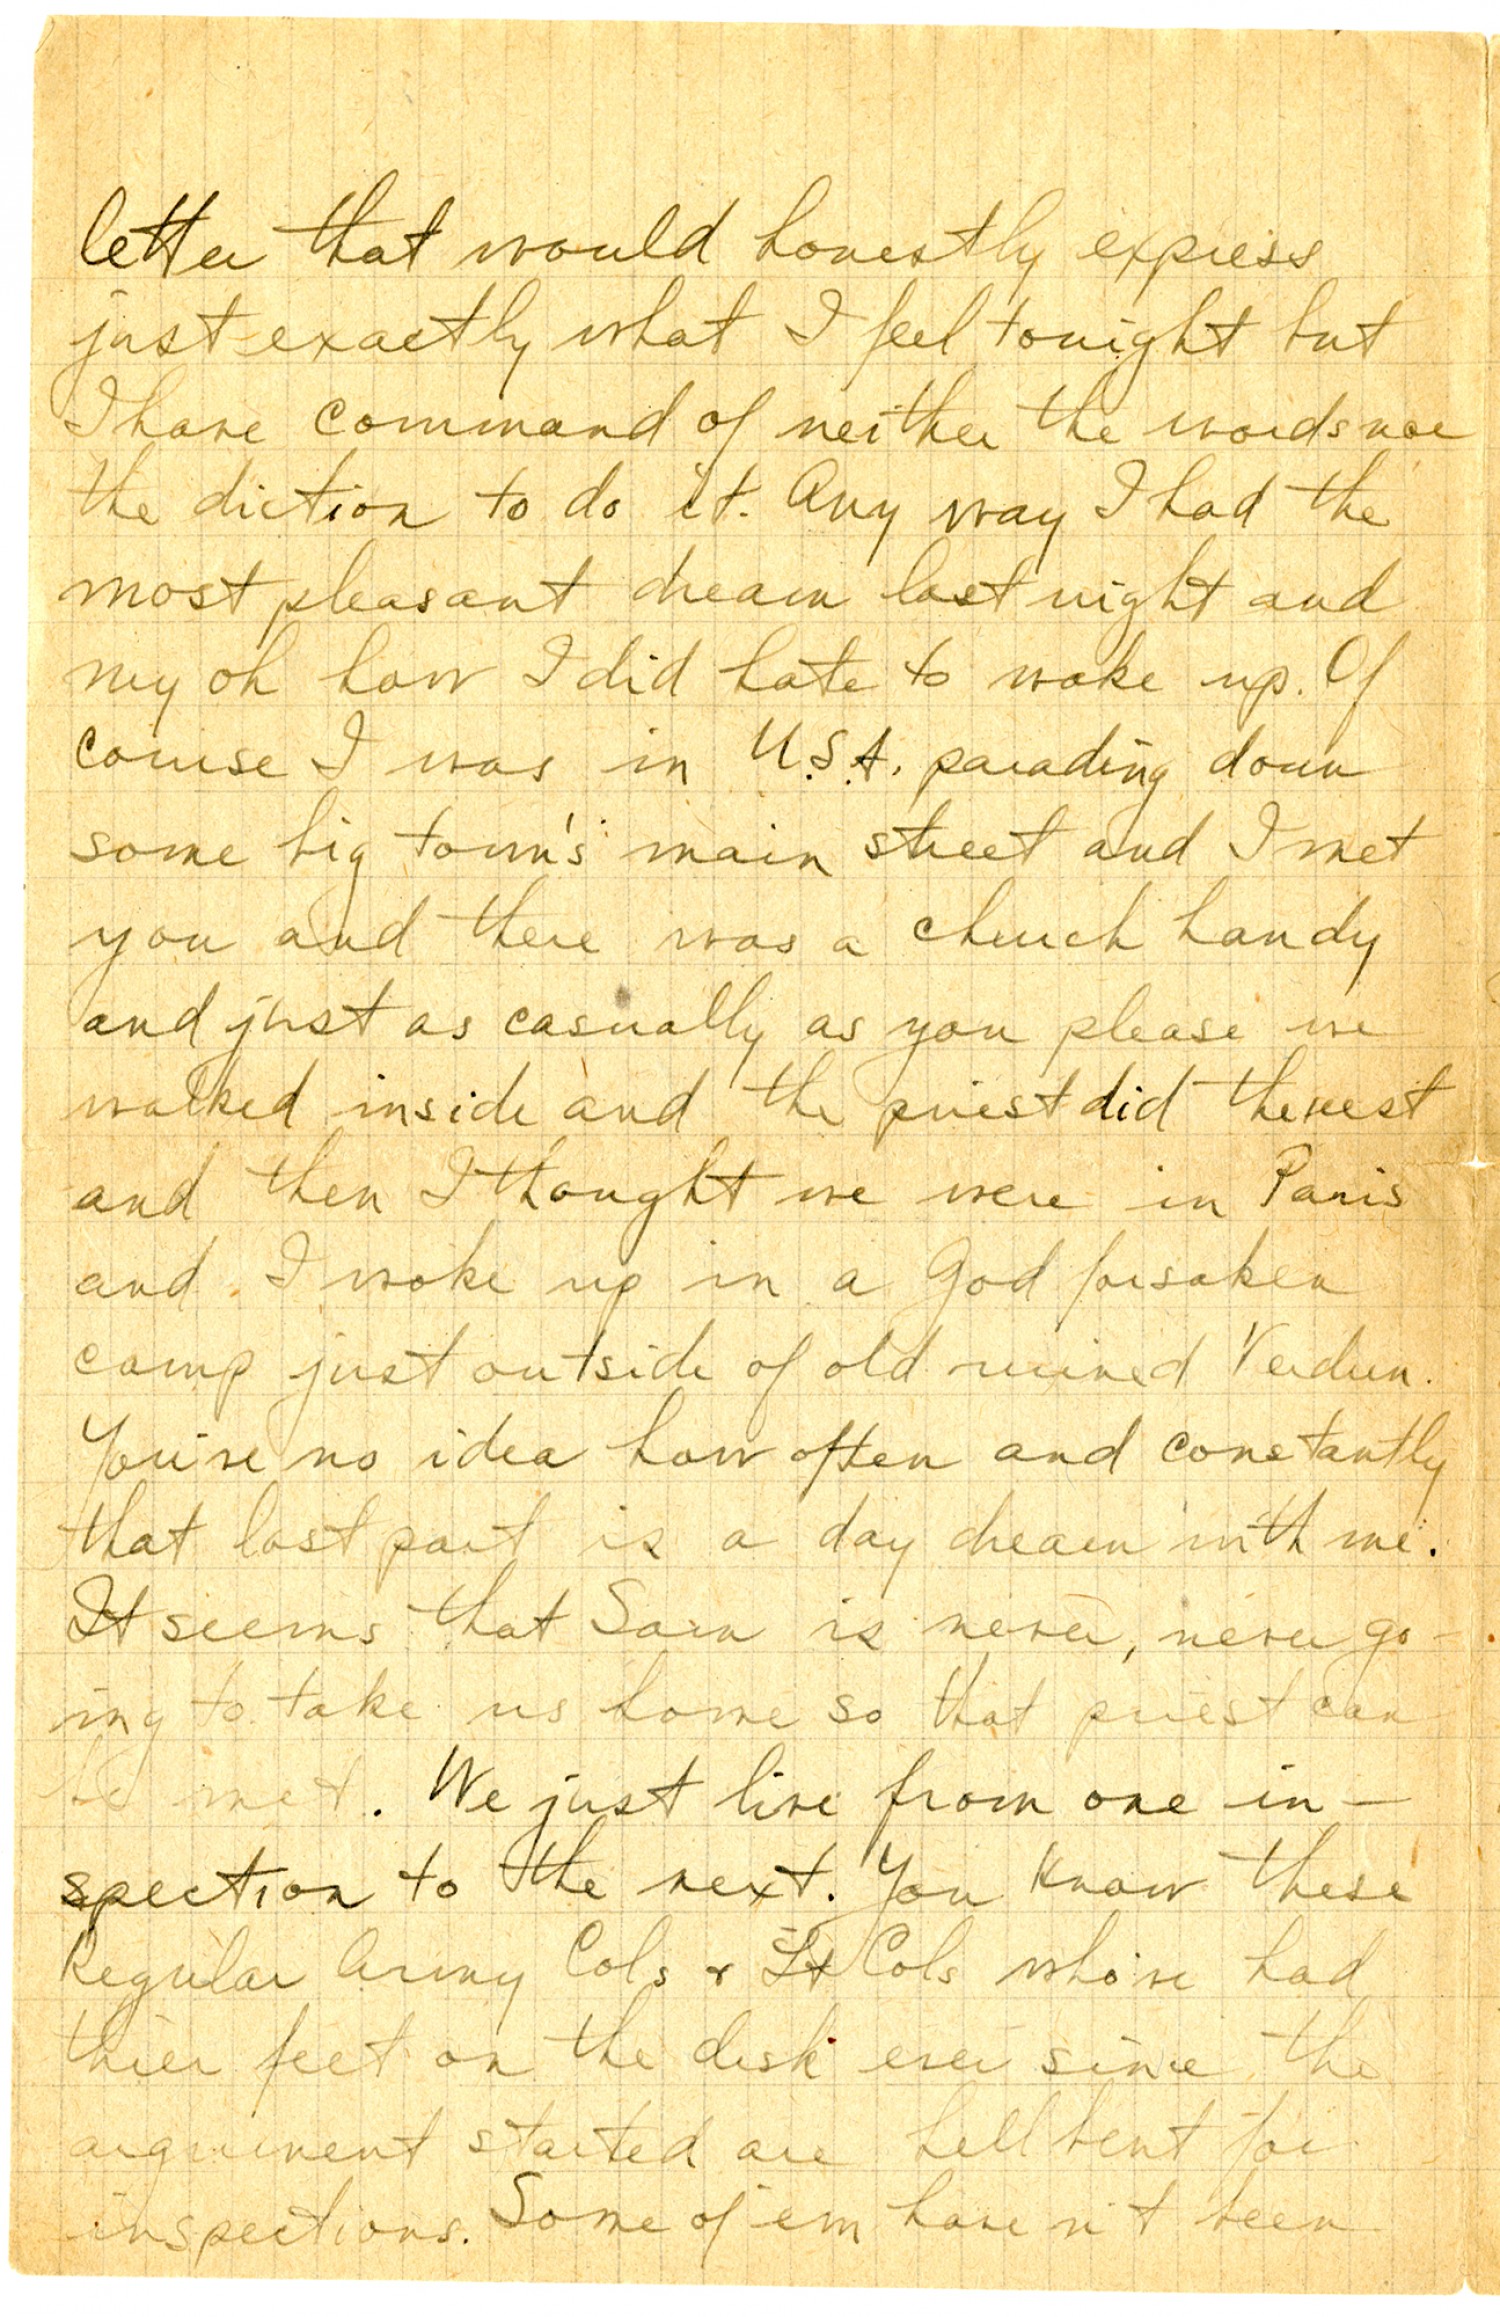 letter that would honestly express
just exactly what I feel tonight but
I have command of neither the words nor
the diction to do it. Any way I had the
most pleasant dream last night and
my oh how I did hate to wake up. Of
course I was in U.S.A. parading down
some big town's main street and I met
you and there was a church handy
and just as casually as you please we
walked inside and the priest did the rest
and then I thought we were in Paris
and I woke up in a God forsaken
camp just outside of old ruined Verdun.
You've no idea how often and constantly
that last part is a day dream with me.
It seems that Sam is never, never go-
ing to take us home so that priest can
be met. We just live from one in-
spection to the next. You know these
Regular Army Cols & Lt Cols who've had
thier feet on the desk ever since the
argument started are hell bent for
inspections. Some of 'em haven't been